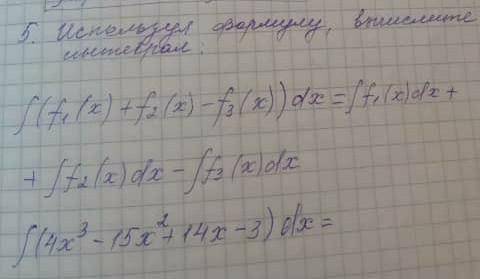 5. Используя формулу, вычислите
интеграл:
∫(f₁(x) + f₂(x) − f₃(x)) dx = ∫f₁(x)dx +
+ ∫f₂(x)dx − ∫f₃(x)dx
∫(4x³ − 15x² + 14x − 3) dx =